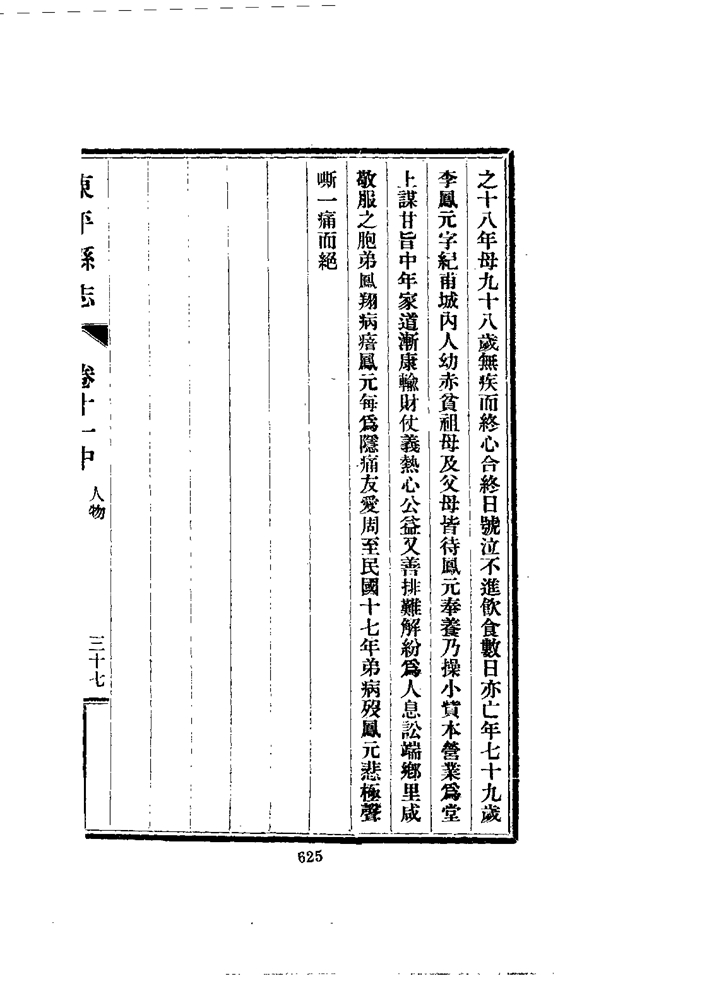 之十八年母九十八歲無疾而終心合終日號泣不進飲食數日亦亡年七十九歲
李鳳元字紀甫城內人幼赤貧祖母及父母皆待鳳元奉養乃操小貲本營業爲堂
上謀甘旨中年家道漸康輸財仗義熱心公益又善排難解紛爲人息訟端鄉里咸
敬服之胞弟鳳翔病瘖鳳元每爲隱痛友愛周至民國十七年弟病歿鳳元悲極聲
嘶一痛而絕
東平縣志
卷十一中
人物
三十七
625